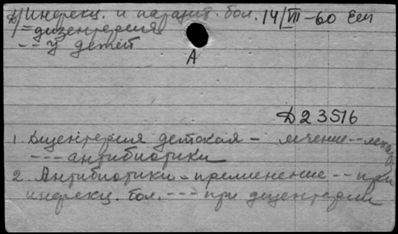 Инфекц. и паразит. бол. 14/VIII-60 Ееп
= дизентерия
--- у детей
А
Д23516
1. Дизентерия детская - лечение --
--- антибиотики
2. Антибиотики - применение -- при
инфекц. бол. --- при дизентерии